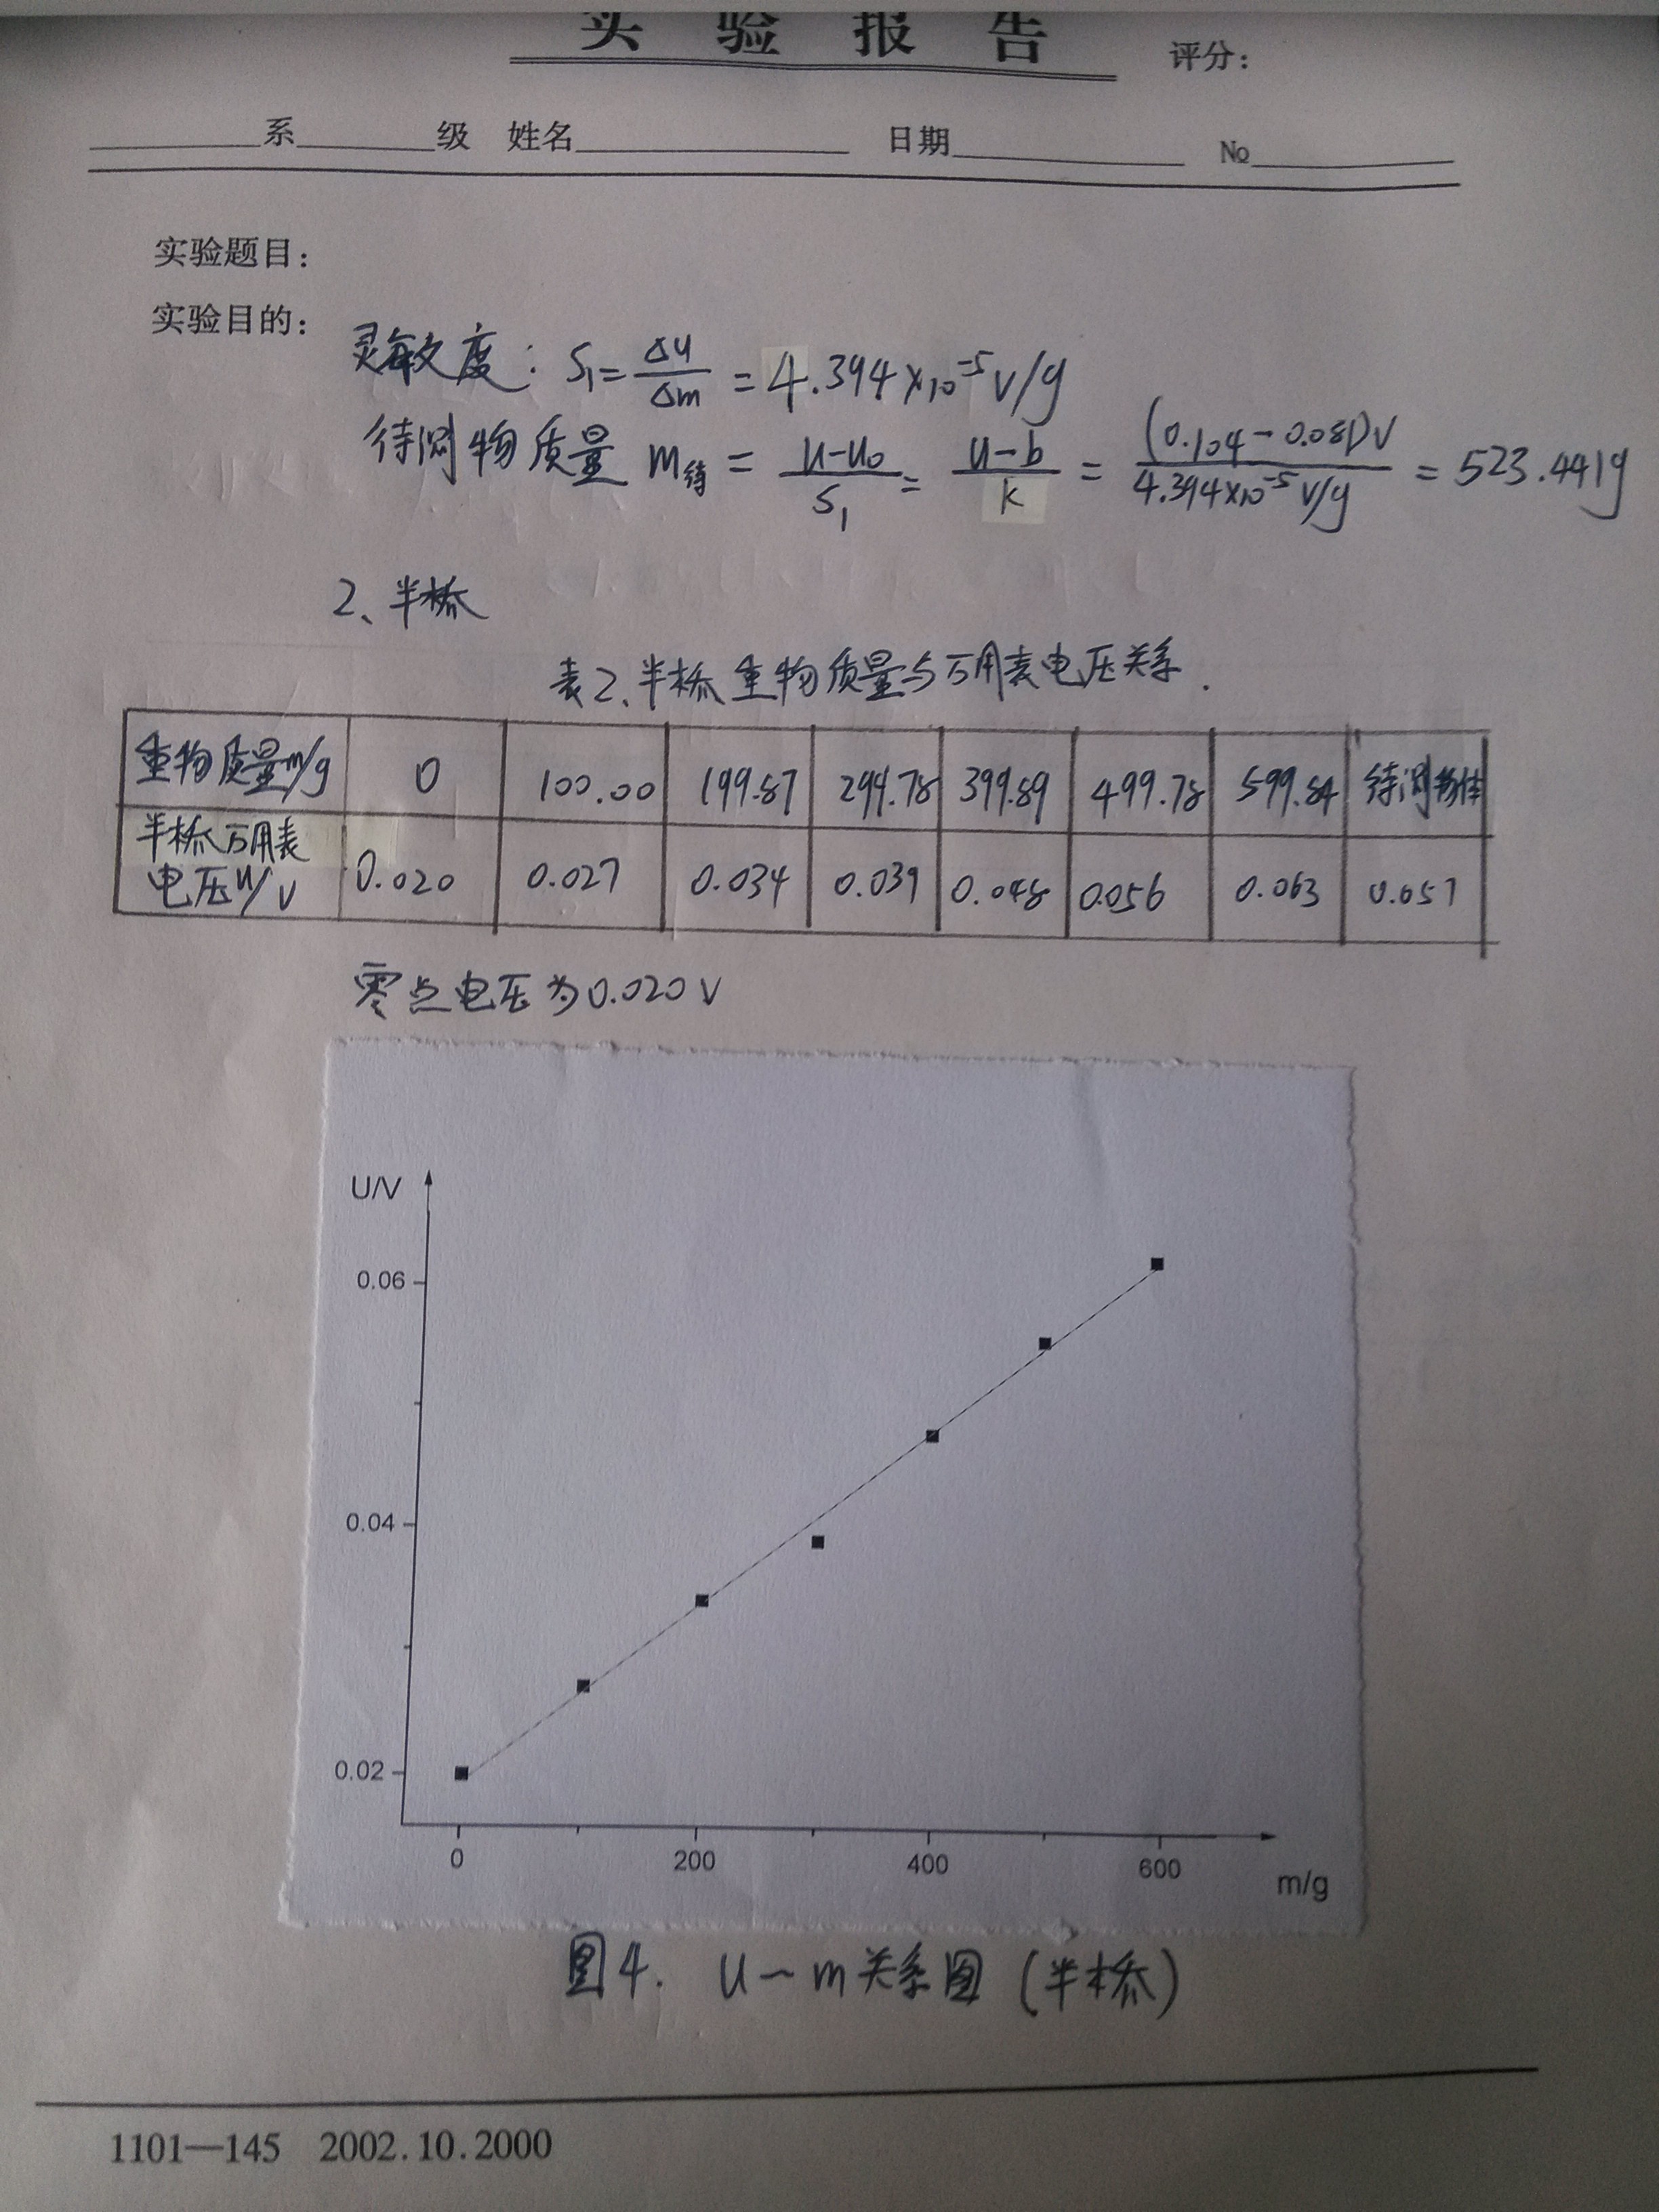 实验报告
评分:
系 级 姓名 日期 №
实验题目:
实验目的:
灵敏度: S₁=Δu/Δm=4.394×10⁻⁵V/g
待测物质量 m待=(u-u₀)/S₁=(u-b)/k=(0.104-0.081)V/(4.394×10⁻⁵V/g)=523.441g
2、半桥
表2、半桥重物质量与万用表电压关系.
重物质量m/g 0 100.00 199.87 294.78 399.89 499.78 599.84 待测物体
半桥万用表电压u/V 0.020 0.027 0.034 0.039 0.048 0.056 0.063 0.057
零点电压为0.020V
U/V
0.06
0.04
0.02
0 200 400 600
m/g
图4. u~m关系图(半桥)
1101—145 2002.10.2000